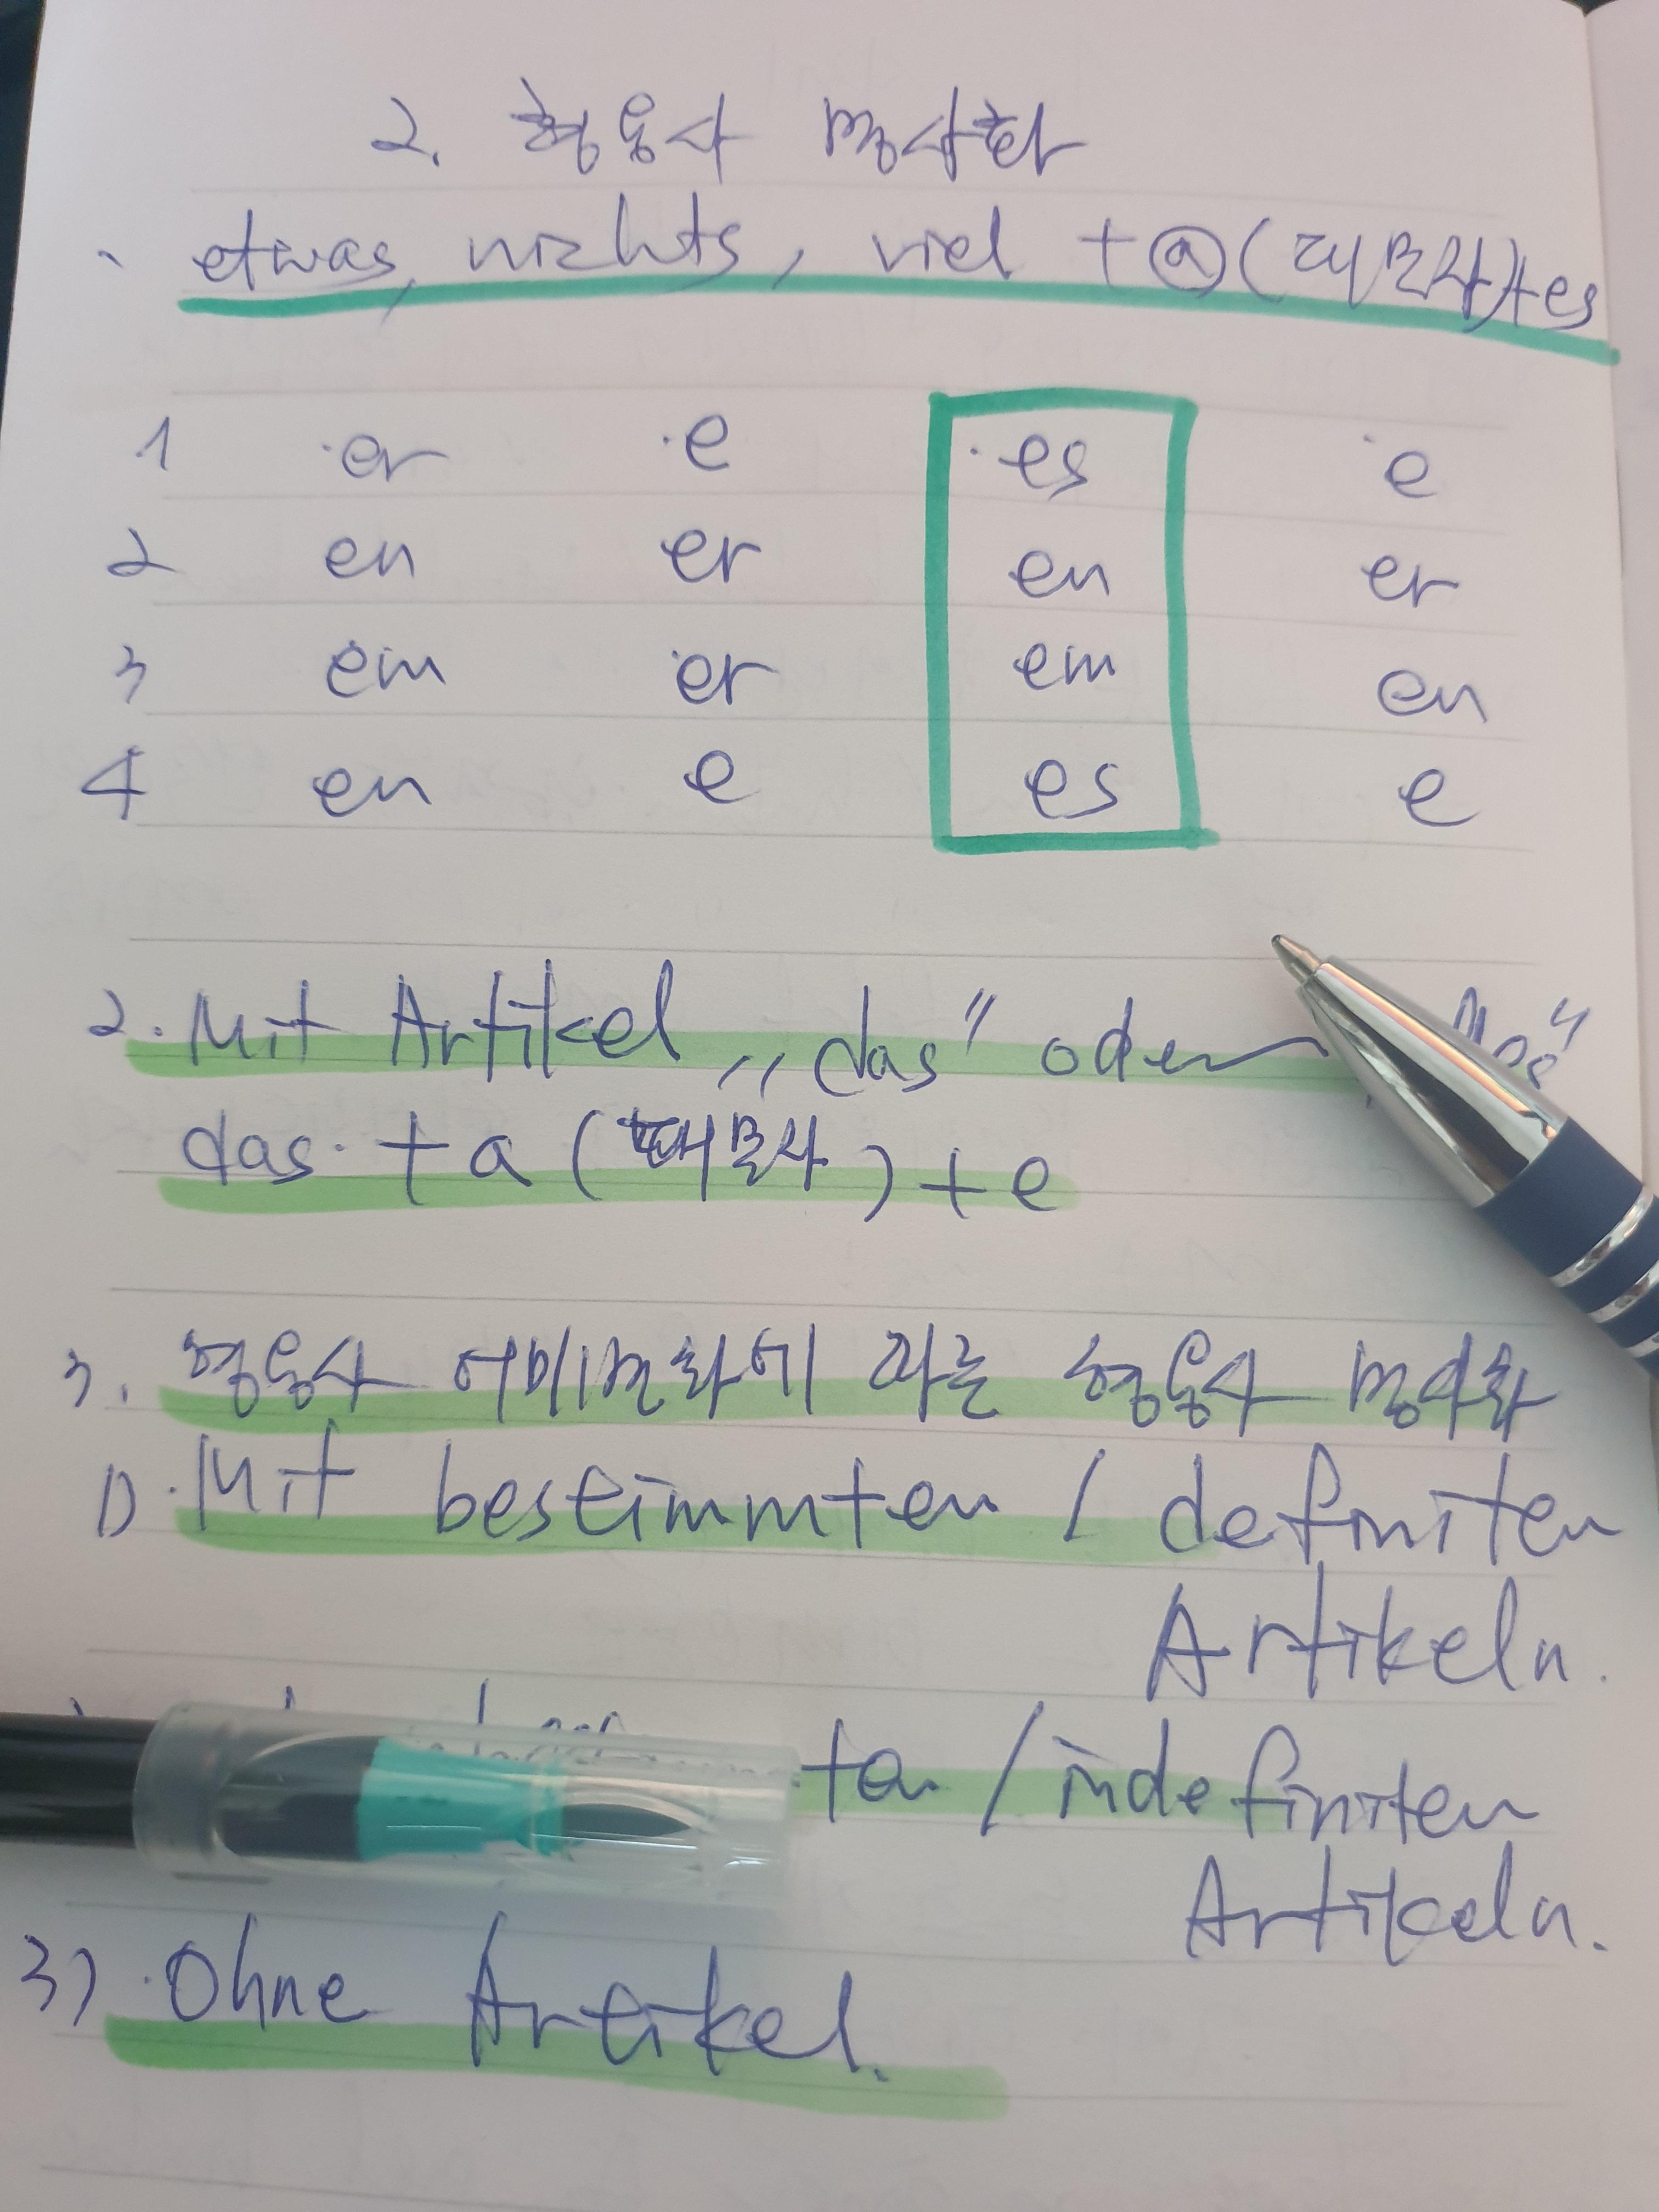 2. 형용사 명사화
· etwas, nichts, viel + ⓐ (대문자)+es
1 er e es e
2 en er en er
3 em er em en
4 en e es e
2. Mit Artikel „das" oder
das + a (대문자) + e
3. 형용사 어미변화에 따른 형용사 명사화
1) Mit bestimmten / definiten
Artikeln.
/ indefiniten
Artikeln.
3) Ohne Artikel.